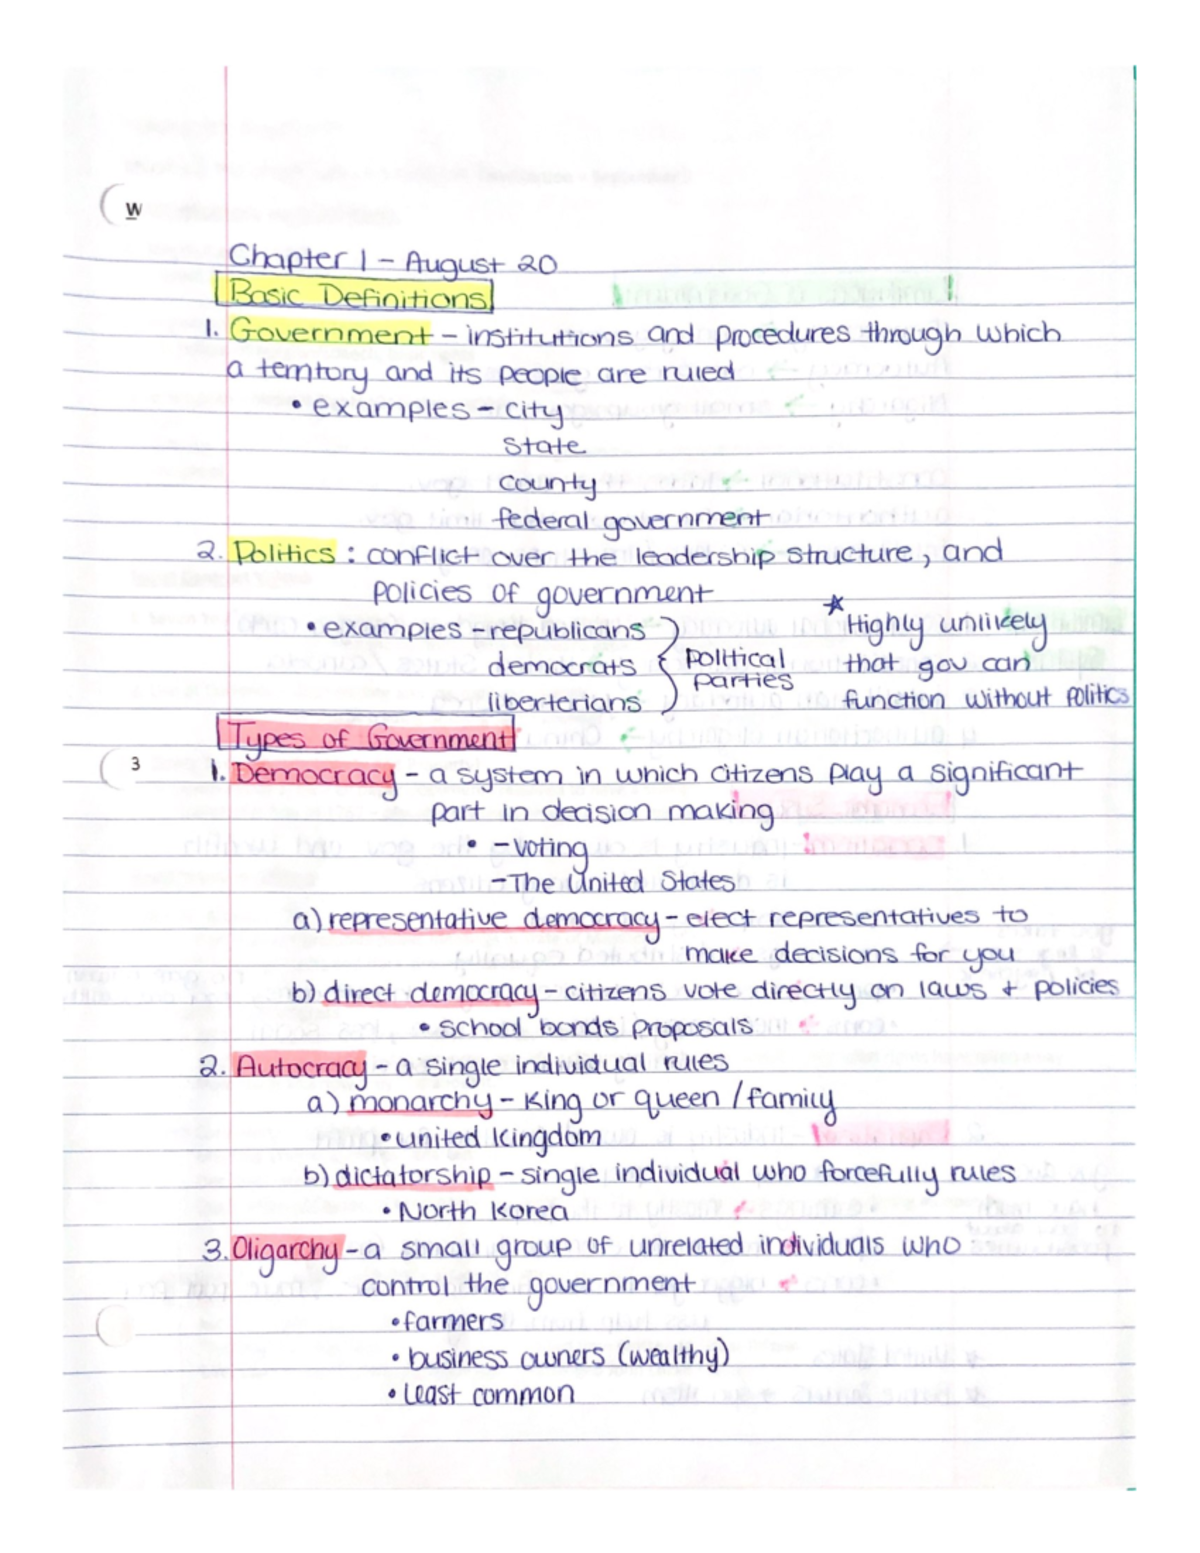 W
Chapter 1 - August 20
Basic Definitions
1. Government - institutions and procedures through which
a territory and its people are ruled
• examples - city
state
county
federal government
2. Politics : conflict over the leadership structure, and
policies of government
• examples - republicans
democrats
liberterians
political
parties
★ Highly unlikely
that gov can
function without politics
Types of Government
3
1. Democracy - a system in which citizens play a significant
part in decision making
• - voting
- The United States
a) representative democracy - elect representatives to
make decisions for you
b) direct democracy - citizens vote directly on laws + policies
• school bonds proposals
2. Autocracy - a single individual rules
a) monarchy - king or queen / family
• united kingdom
b) dictatorship - single individual who forcefully rules
• North Korea
3. Oligarchy - a small group of unrelated individuals who
control the government
• farmers
• business owners (wealthy)
• least common